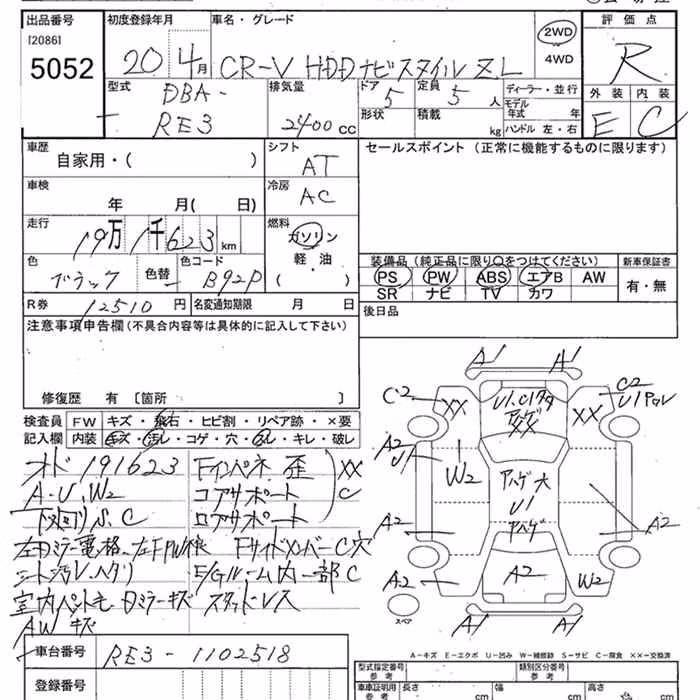 出品番号 初度登録年月 車名・グレード 評価点
[2086]
5052
20 4月 CR-V HDDナビスタイル ZL 2WD 4WD R
型式 排気量 ドア 定員 ディーラー・並行 外装 内装
DBA-RE3 2400cc 5 5人 モデル年式 年 E C
形状 積載 kg ハンドル 左・右
車歴 シフト セールスポイント (正常に機能するものに限ります)
自家用・( ) AT
車検 冷房
年 月( 日) AC
走行 燃料
19万1千623km ガソリン
軽油
( )
色 色替 色コード 装備品(純正品に限り○をつけてください) 新車保証書
ブラック - B92P PS PW ABS エアB AW 有・無
SR ナビ TV カワ
R券 12510円 名変通知期限 月 日 後日品
注意事項申告欄(不具合内容等は具体的に記入して下さい)
修復歴 有 [箇所 ]
検査員 FW キズ・飛石・ヒビ割・リペア跡・×要
記入欄 内装 キズ・汚レ・コゲ・穴・スレ・キレ・破レ
オド191623 Fインパネ歪 XX
A・U、W2 コアサポート C
下廻りS、C ロアサポート
左Dミラー電格、左FPW Fサイドメンバー C穴
シート汚レ、ヘタリ E/Gルーム内一部C
室内ペットモ Dミラーキズ スタッドレス
AWキズ
A1 A1
C2 XX U1、C1 XX C2 U1
A2 U1 W2 アハゲ大 U1 アハゲ
A2 A2
A2 A2 W2
A1 A1
スペア
A-キズ E-エクボ U-凹み W-補修跡 S-サビ C-腐食 ××-交換済
車台番号 RE3-1102518
型式指定番号 参考 類別区分番号 参考
登録番号
車庫証明用 参考 長さ cm 幅 cm 高さ cm